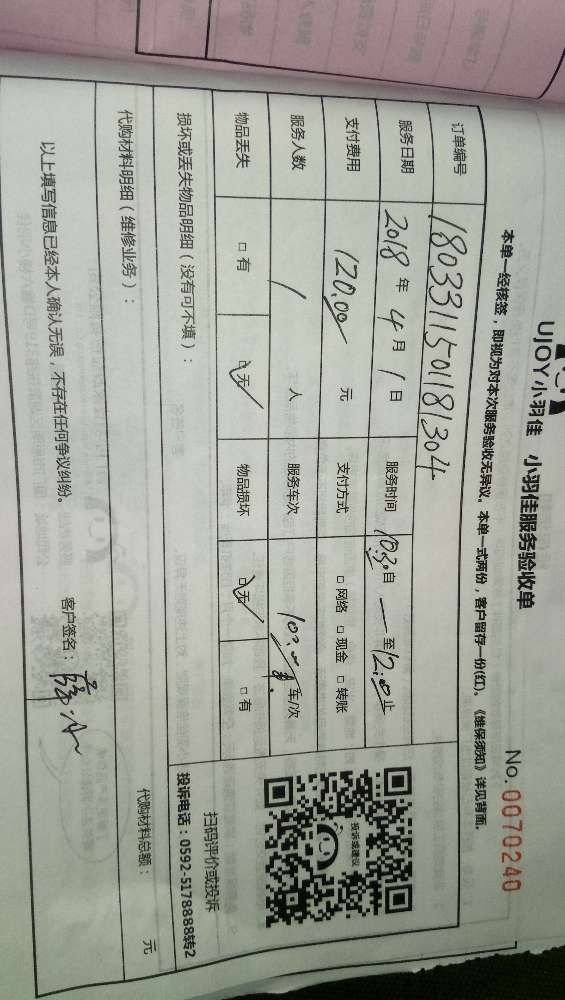 UJOY小羽佳 小羽佳服务验收单
No.0070240
本单一经核签，即视为对本次服务验收无异议。本单一式两份，客户留存一份(红)。《维保须知》详见背面。
订单编号 1803311501181304
服务日期 2018年4月1日 服务时间 自 — 至12:00止
支付费用 120.00元 支付方式 □网络 □现金 □转账
服务人数 1人 服务车次 车/次
物品丢失 □有 □无 物品损坏 □无 □有
投诉或建议
扫码评价或投诉
投诉电话：0592-5178888转2
损坏或丢失物品明细（没有可不填）：
代购材料明细（维修业务）：
代购材料总额： 元
以上填写信息已经本人确认无误，不存在任何争议纠纷。 客户签名：